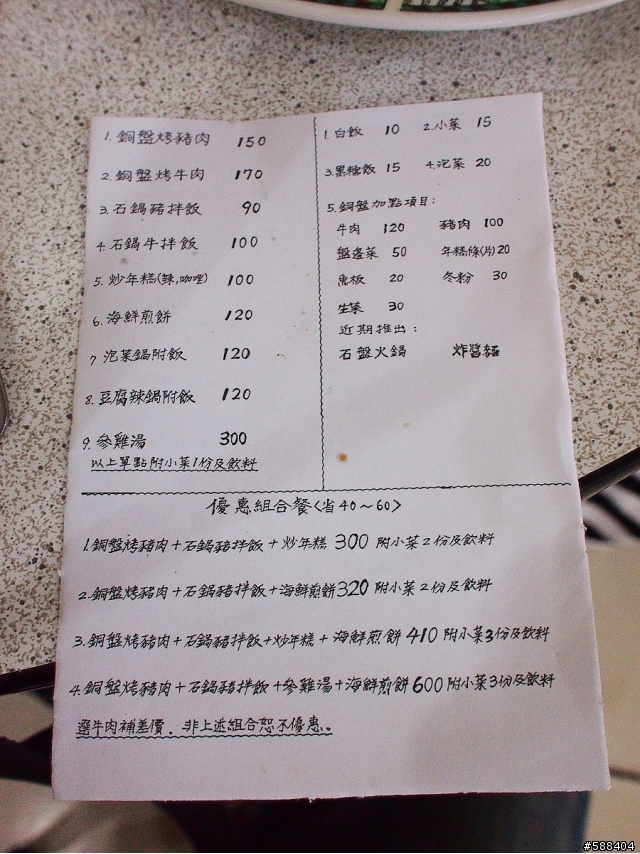 1. 銅盤烤豬肉 150
2. 銅盤烤牛肉 170
3. 石鍋豬拌飯 90
4. 石鍋牛拌飯 100
5. 炒年糕(辣,咖哩) 100
6. 海鮮煎餅 120
7 泡菜鍋附飯 120
8. 豆腐辣鍋附飯 120
9. 參雞湯 300
以上單點附小菜1份及飲料
1. 白飯 10 2. 小菜 15
3. 黑糯飯 15 4. 泡菜 20
5. 銅盤加點項目:
牛肉 120 豬肉 100
盤邊菜 50 年糕條(片) 20
魚板 20 冬粉 30
生菜 30
近期推出:
石盤火鍋 炸醬麵
優惠組合餐<省40~60>
1. 銅盤烤豬肉+石鍋豬拌飯+炒年糕 300 附小菜2份及飲料
2. 銅盤烤豬肉+石鍋豬拌飯+海鮮煎餅 320 附小菜2份及飲料
3. 銅盤烤豬肉+石鍋豬拌飯+炒年糕+海鮮煎餅 410 附小菜3份及飲料
4. 銅盤烤豬肉+石鍋豬拌飯+參雞湯+海鮮煎餅 600 附小菜3份及飲料
選牛肉補差價. 非上述組合恕不優惠。
#588404